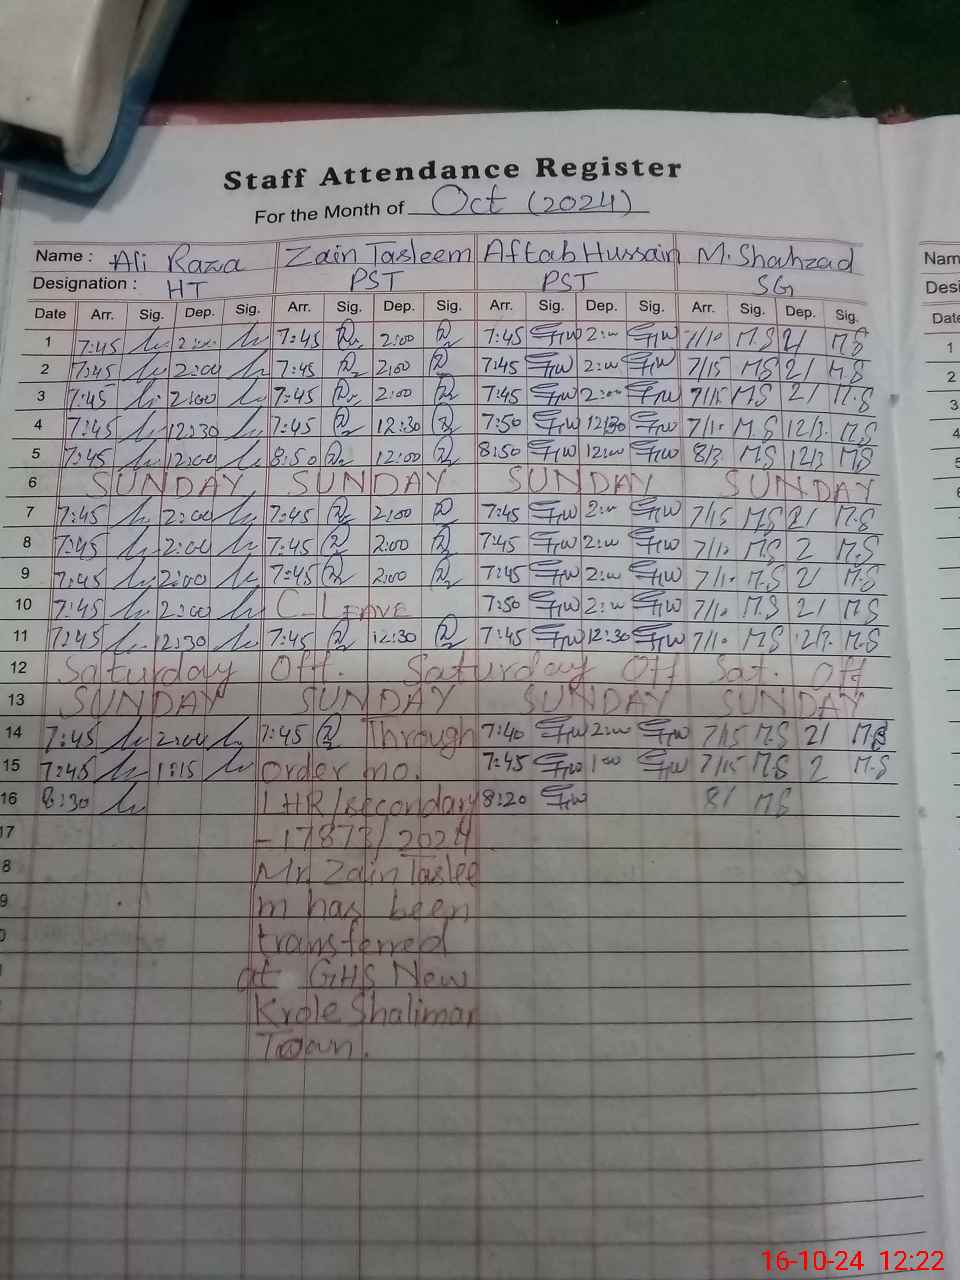 Staff Attendance Register
For the Month of Oct (2024)
Name : Ali Raza Zain Tasleem Aftab Hussain M. Shahzad
Designation : HT PST PST SG
Date Arr. Sig. Dep. Sig. Arr. Sig. Dep. Sig. Arr. Sig. Dep. Sig. Arr. Sig. Dep. Sig.
1 7:45 2:00 7:45 2:00 7:45 2:00 7/10 M.S 2/ M.S
2 7:45 2:00 7:45 2:00 7:45 2:00 7/15 M.S 2/ M.S
3 7:45 2:00 7:45 2:00 7:45 2:00 7/15 M.S 2/ M.S
4 7:45 12:30 7:45 12:30 7:50 12:30 7/10 M.S 12/3 M.S
5 7:45 12:00 8:50 12:00 8:50 12:00 8/3 M.S 12/3 M.S
6 SUNDAY SUNDAY SUNDAY SUNDAY
7 7:45 2:00 7:45 2:00 7:45 2:00 7/15 M.S 2/ M.S
8 7:45 2:00 7:45 2:00 7:45 2:00 7/10 M.S 2 M.S
9 7:45 2:00 7:45 2:00 7:45 2:00 7/10 M.S 2/ M.S
10 7:45 2:00 C-LEAVE 7:50 2:00 7/10 M.S 2/ M.S
11 7:45 12:30 7:45 12:30 7:45 12:30 7/10 M.S 12/3 M.S
12 Saturday Off. Saturday Off Sat. Off
13 SUNDAY SUNDAY SUNDAY SUNDAY
14 7:45 2:00 7:45 Through 7:40 2:00 7/15 M.S 2/ M.S
15 7:45 1:15 order no. 7:45 1:00 7/15 M.S 2 M.S
16 8:30 LHR/secondary 8:20 8/ M.S
17 -17873/2024
8 Mr. Zain Taslee
9 m has been
transferred
at GHS New
Krole Shalimar
Town.
Nam
Desi
Date
1
2
3
4
5
16-10-24 12:22